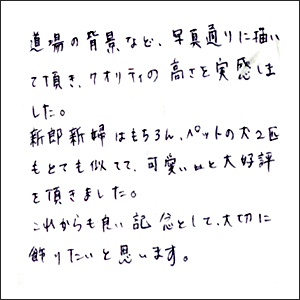 道場の背景など、写真通りに描い
て頂き、クオリティの高さを実感しま
した。
新郎新婦はもちろん、ペットの犬2匹
もとても似てて、可愛いと大好評
を頂きました。
これからも良い記念として、大切に
飾りたいと思います。